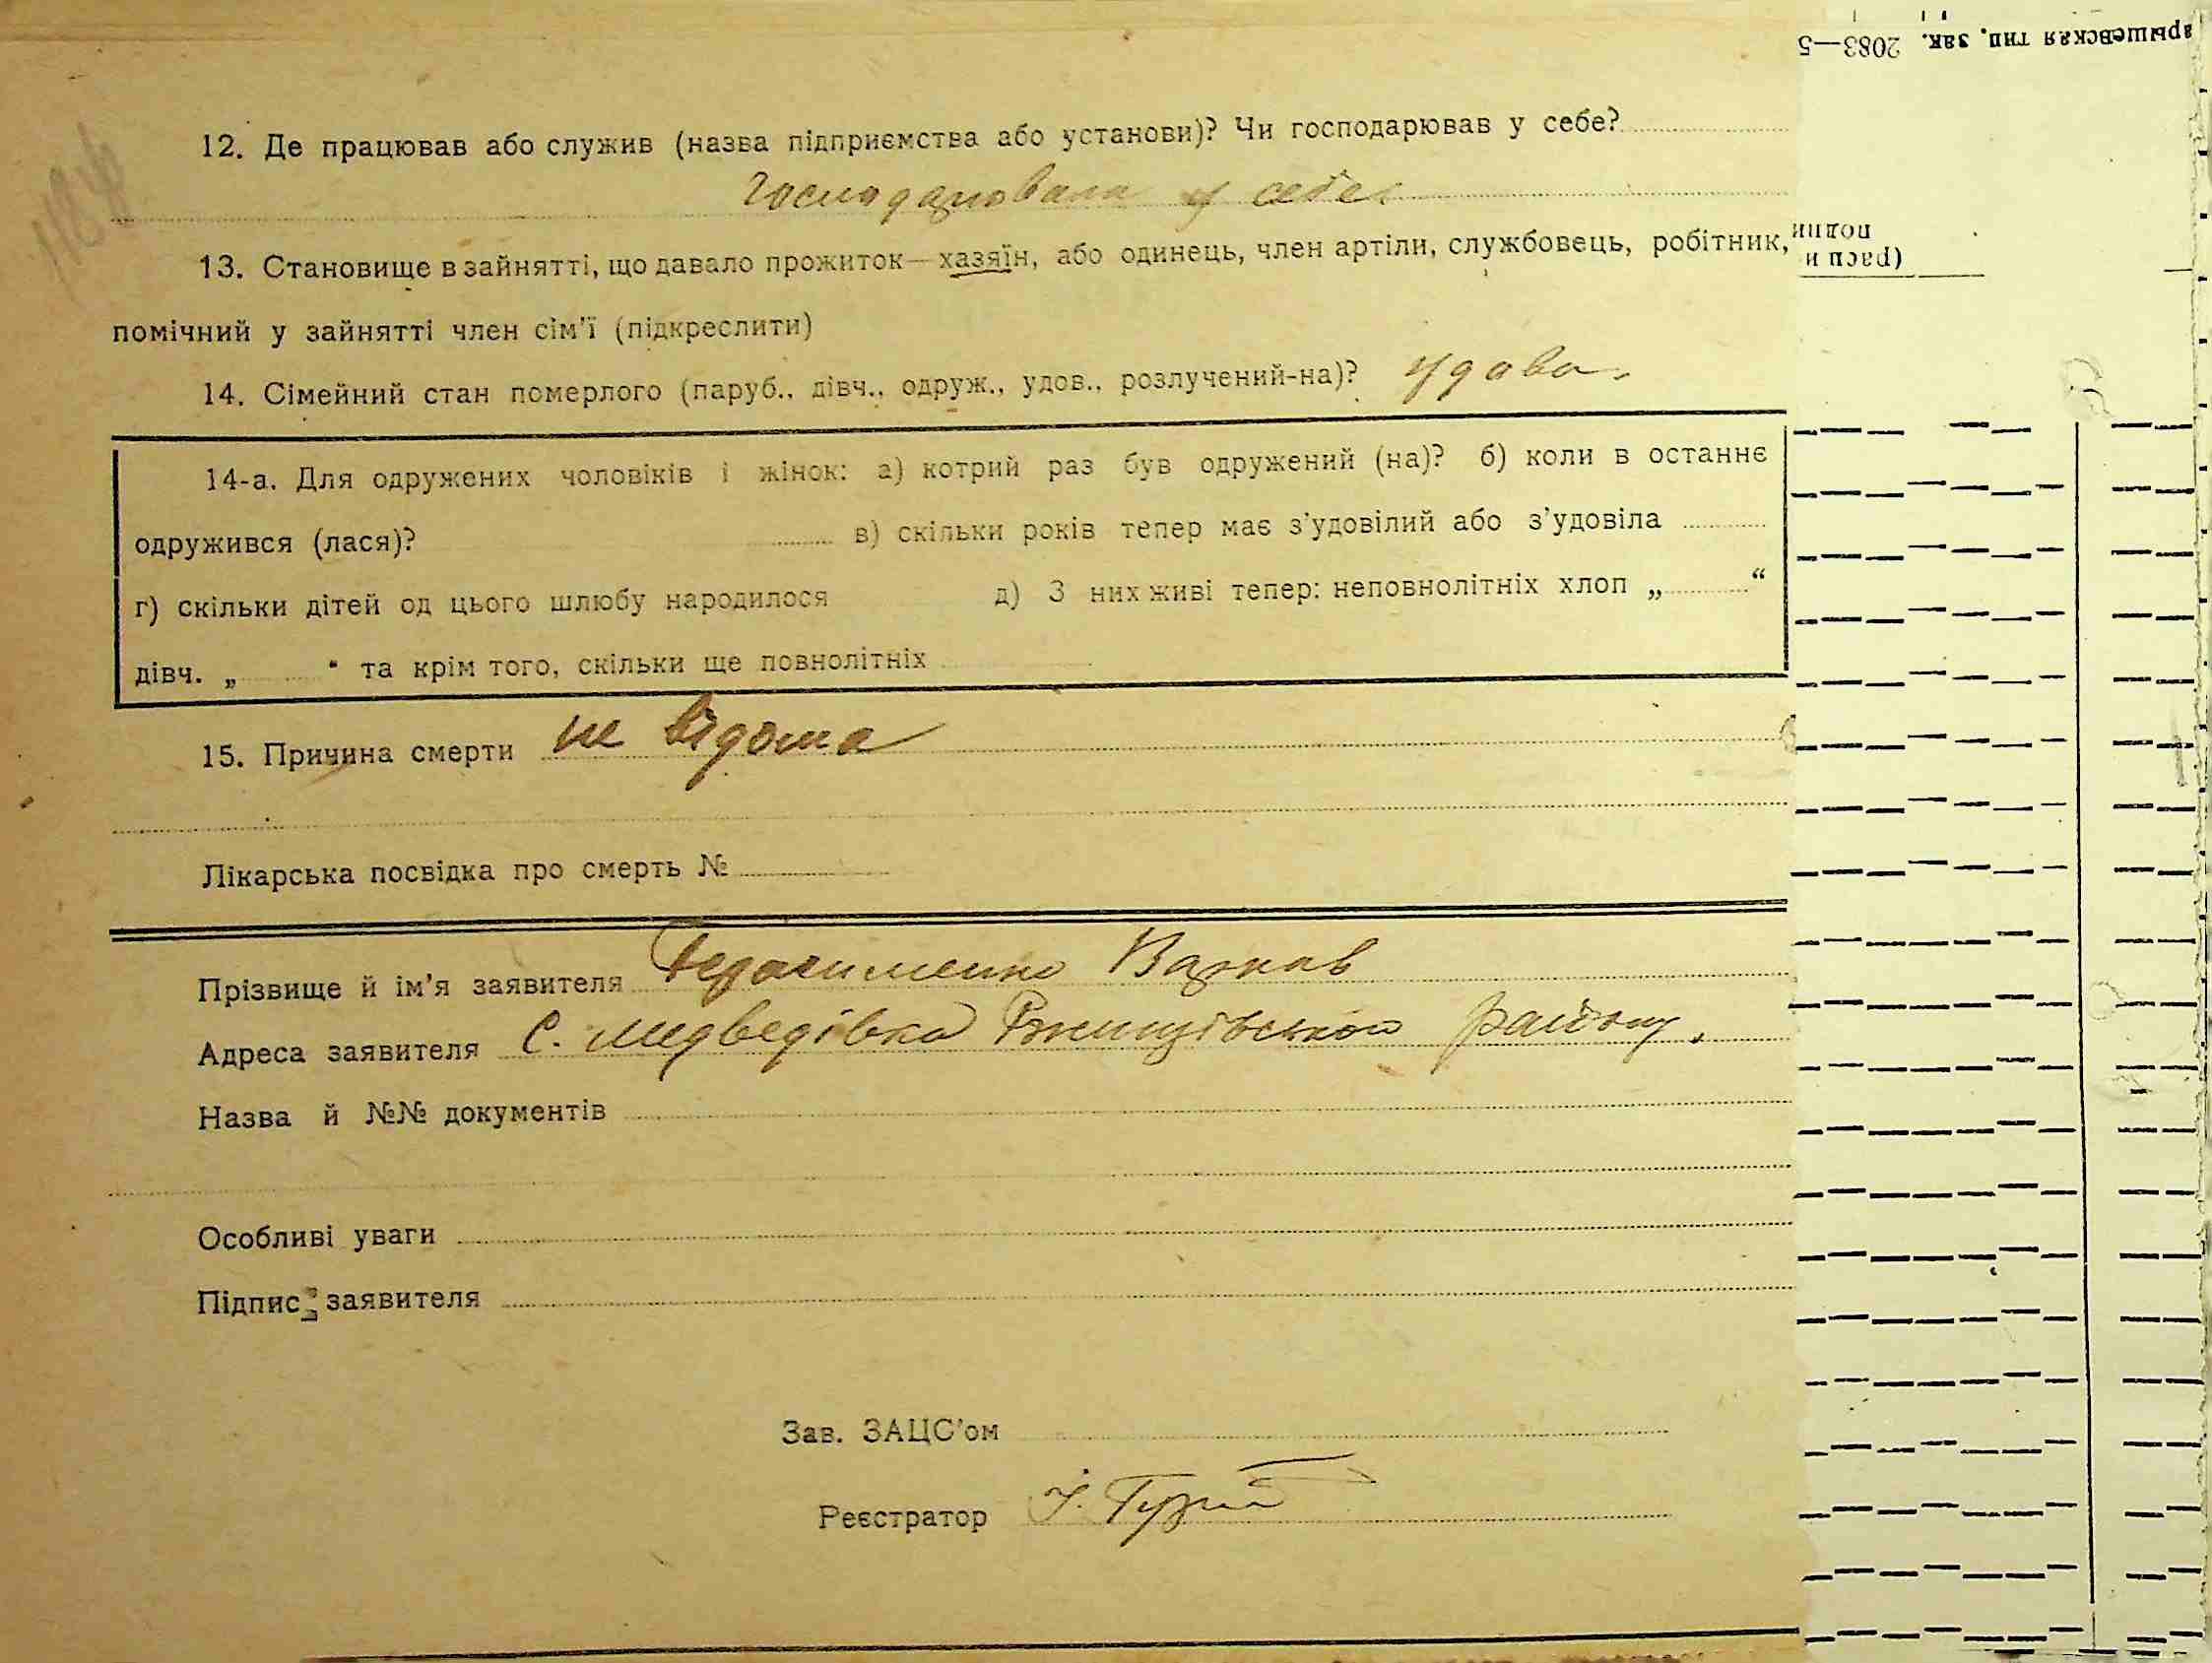 арышевская тип. зак. 2083—5
12. Де працював або служив (назва підприємства або установи)? Чи господарював у себе?
Господарювала у себе.
13. Становище в зайнятті, що давало прожиток—хазяїн, або одинець, член артіли, службовець, робітник,
помічний у зайнятті член сім'ї (підкреслити)
14. Сімейний стан померлого (паруб., дівч., одруж., удов., розлучений-на)? удова.
14-а. Для одружених чоловіків і жінок: а) котрий раз був одружений (на)? б) коли в останнє
одружився (лася)? в) скільки років тепер має з'удовілий або з'удовіла
г) скільки дітей од цього шлюбу народилося д) З них живі тепер: неповнолітніх хлоп „ “
дівч. „ “ та крім того, скільки ще повнолітніх
15. Причина смерти не відома
Лікарська посвідка про смерть №
Прізвище й ім'я заявителя Герасименко Варнав
Адреса заявителя С. Медведівка Ржищівського району.
Назва й №№ документів
Особливі уваги
Підпис заявителя
Зав. ЗАЦС'ом
Реєстратор